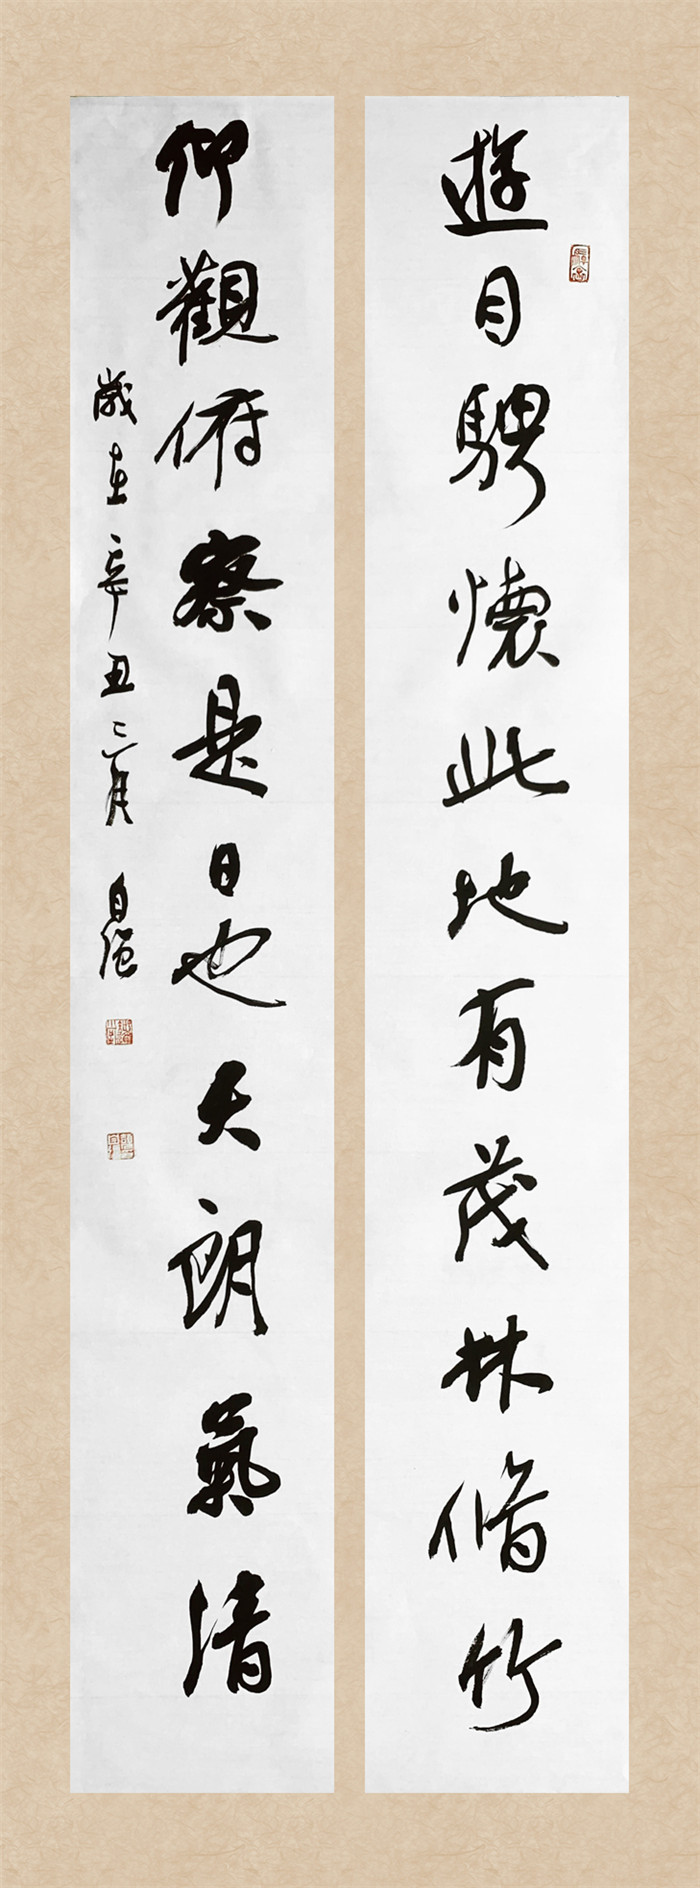 遊目騁懷此地有茂林脩竹
仰觀俯察是日也天朗氣清
歲在辛丑三月 自